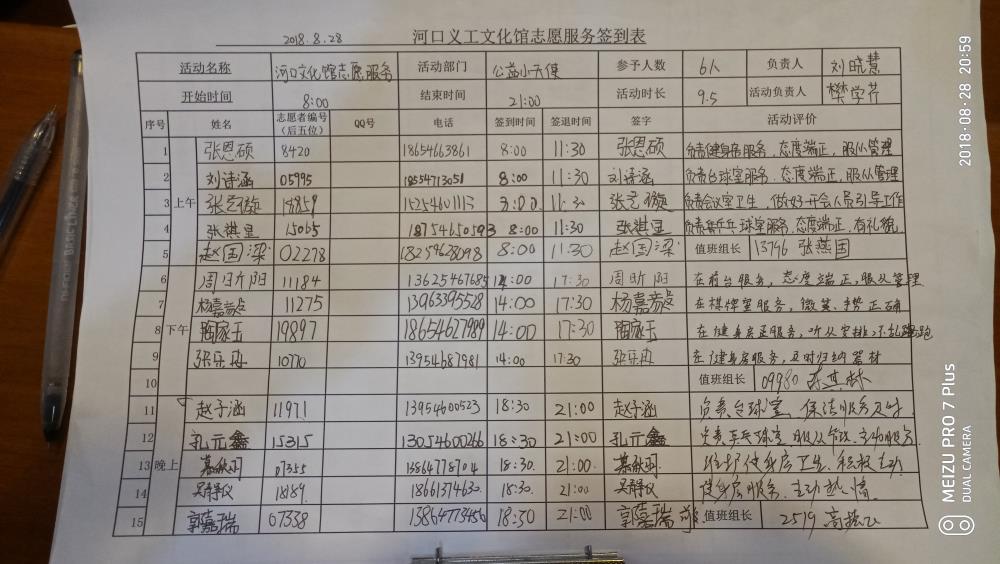 2018.8.28 河口义工文化馆志愿服务签到表
活动名称 河口文化馆志愿服务 活动部门 公益小天使 参予人数 6人 负责人 刘晓慧
开始时间 8:00 结束时间 21:00 活动时长 9.5 活动负责人 樊学芹
序号 姓名 志愿者编号(后五位) QQ号 电话 签到时间 签退时间 签字 活动评价
1 张恩硕 8420 18654663861 8:00 11:30 张恩硕 负责健身房服务、态度端正,服从管理
2 刘诗涵 05995 18554713051 8:00 11:30 刘诗涵 负责台球室服务、态度端正,服从管理
3 上午 张艺璇 18859 15254601113 8:00 11:30 张艺璇 负责会议室卫生,做好开会人员引导工作
4 张祺里 15065 18754650593 8:00 11:30 张祺里 负责乒乓球室服务,态度端正,有礼貌
5 赵国梁 02278 18254628098 8:00 11:30 赵国梁 值班组长 13796 张燕国
6 周昕阳 11184 13625467685 14:00 17:30 周昕阳 在前台服务,态度端正,服从管理
7 杨嘉 11275 13963395528 14:00 17:30 杨嘉 在棋牌室服务,微笑、手势正确
8 下午 陶家玉 19897 18654627989 14:00 17:30 陶家玉 在健身房服务,听从安排,不乱跑
9 张乐冉 10770 13954687981 14:00 17:30 张乐冉 在健身房服务,及时归纳器材
10 值班组长 09980
11 赵子涵 11971 13954600523 18:30 21:00 赵子涵 负责台球室,保洁服务及时
12 孔亓鑫 15315 13054600266 18:30 21:00 孔亓鑫 负责乒乓球室,服从管理,主动服务
13 晚上 07355 13864778704 18:30. 21:00. 维护健身房卫生、积极主动.
14 吴静仪 18189. 18661374630. 18:30. 21:00 吴静仪 健身房服务,主动热情。
15 郭嘉瑞 07338 13864773456 18:30 21:00 郭嘉瑞 值班组长 2519
MEIZU PRO 7 Plus
DUAL CAMERA
2018-08-28 20:59